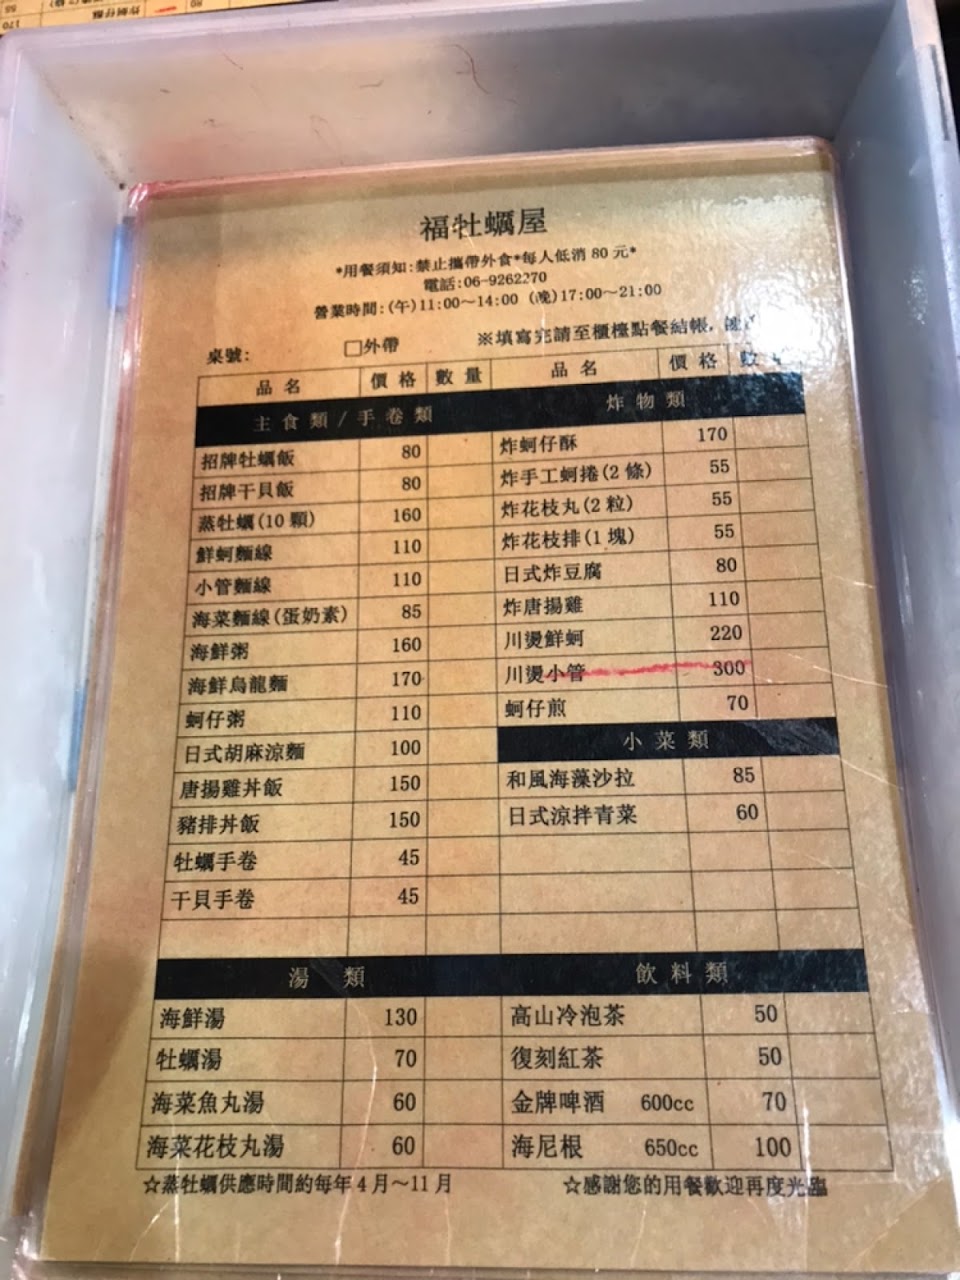 福牡蠣屋
*用餐須知:禁止攜帶外食*每人低消 80 元*
電話:06-9262270
營業時間:(午)11:00~14:00 (晚)17:00~21:00
桌號: □外帶 ※填寫完請至櫃檯點餐結帳,
品名 價格 數量 品名 價格
主食類/手卷類 炸物類
招牌牡蠣飯 80 炸蚵仔酥 170
招牌干貝飯 80 炸手工蚵捲(2 條) 55
蒸牡蠣(10 顆) 160 炸花枝丸(2 粒) 55
鮮蚵麵線 110 炸花枝排(1 塊) 55
小管麵線 110 日式炸豆腐 80
海菜麵線(蛋奶素) 85 炸唐揚雞 110
海鮮粥 160 川燙鮮蚵 220
海鮮烏龍麵 170 川燙小管 300
蚵仔粥 110 蚵仔煎 70
日式胡麻涼麵 100 小菜類
唐揚雞丼飯 150 和風海藻沙拉 85
豬排丼飯 150 日式涼拌青菜 60
牡蠣手卷 45
干貝手卷 45
湯類 飲料類
海鮮湯 130 高山冷泡茶 50
牡蠣湯 70 復刻紅茶 50
海菜魚丸湯 60 金牌啤酒 600cc 70
海菜花枝丸湯 60 海尼根 650cc 100
☆蒸牡蠣供應時間約每年 4 月~11 月 ☆感謝您的用餐歡迎再度光臨